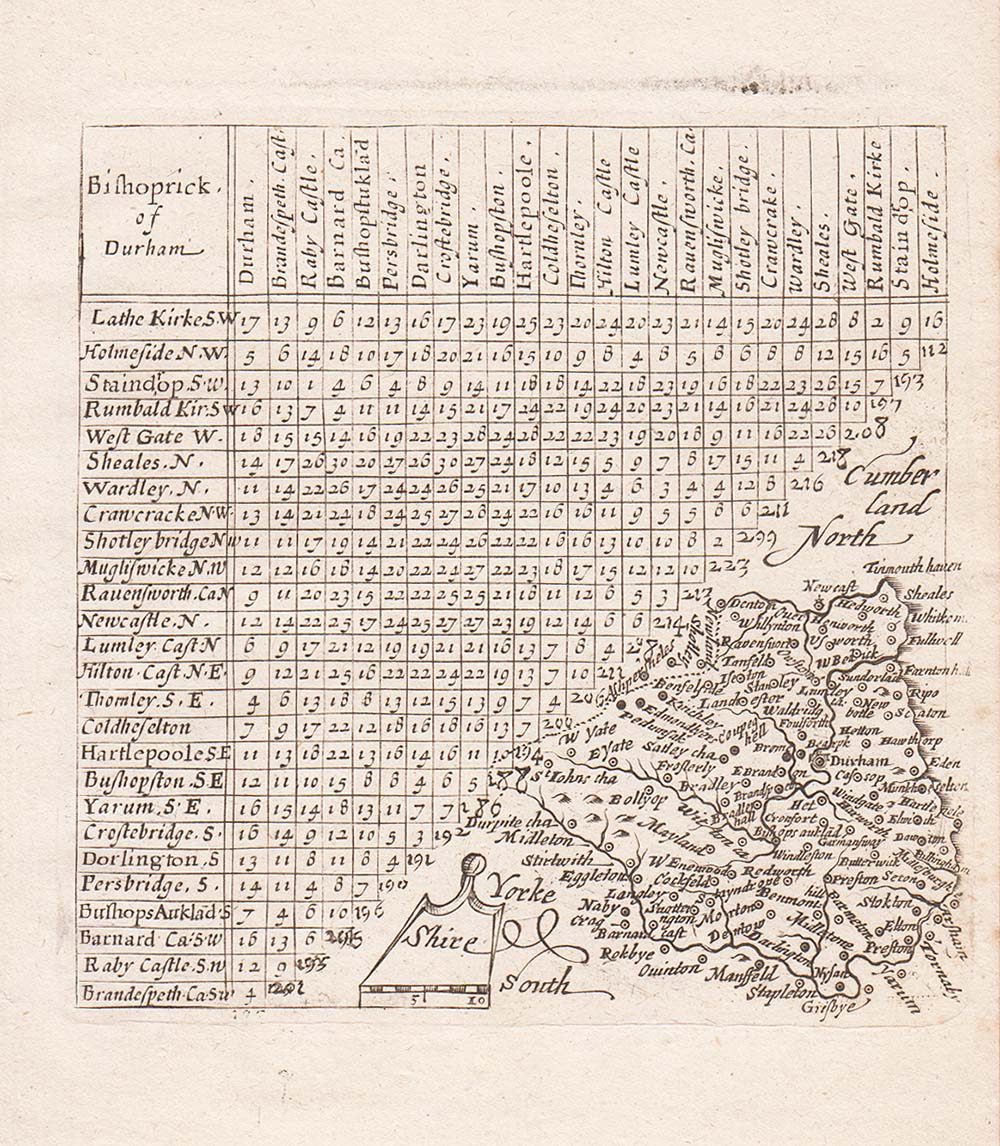 Bishoprick.
of
Durham
Durham.
Brandespeth. Cast.
Raby Castle.
Barnard Ca.
Bushopstuklād
Persbridge.
Darlington
Crostebridge.
Yarum.
Bushopston.
Hartlepoole.
Coldheselton
Thornley.
Hilton Castle
Lumley Castle
Newcastle.
Ravensworth. Ca.
Mugliswicke.
Shotley bridge.
Crawcrake.
Wardley.
Sheales.
West Gate.
Rumbald Kirke
Staindrop.
Holmeside.
Lathe Kirke S.W 17 13 9 6 12 13 16 17 23 19 25 23 20 24 20 23 21 14 15 20 24 28 8 2 9 16
Holmeside N.W. 5 6 14 18 10 17 18 20 21 16 15 10 9 8 4 8 5 8 6 8 8 12 15 16 5 112
Staindrop. S.W. 13 10 1 4 6 4 8 9 14 11 18 18 14 22 18 23 19 16 18 22 23 26 15 7 193
Rumbald Kir. S W 16 13 7 4 11 11 14 15 21 17 24 22 19 24 20 23 21 14 16 21 24 28 10 197
West Gate W. 18 15 15 14 16 19 22 23 28 24 28 22 22 23 19 20 18 9 11 16 22 26 208
Sheales. N. 14 17 26 30 20 27 26 30 27 24 18 12 15 5 9 7 8 17 15 11 4 218
Wardley. N. 11 14 22 26 17 24 24 26 25 21 17 10 13 4 6 3 4 4 12 8 216
Crawcracke N.W. 13 14 21 24 18 24 25 27 28 24 22 16 16 11 9 5 5 8 6 211
Shotley bridge N w 11 11 17 19 14 21 22 24 26 22 22 16 16 13 10 10 8 2 299
Mugliswicke N.W 12 12 16 18 14 20 22 24 27 22 23 18 17 15 12 12 10 223
Ravensworth. Ca N 9 11 20 23 15 22 22 25 25 21 18 11 12 6 5 3 217
Newcastle. N. 12 14 22 25 17 24 25 27 27 23 19 12 14 6 6 214
Lumley Cast N 6 9 17 21 12 19 19 21 21 16 13 7 8 4
Hilton Cast. N.E. 9 12 21 25 16 22 22 24 22 19 13 7 10
Thornley. S. E. 4 6 13 18 8 13 12 15 13 9 7 4 206
Coldheselton 7 9 17 22 12 18 16 18 16 13 7 200
Hartlepoole S E 11 13 18 22 13 16 14 16 11 10 194
Bushopston. S.E 12 11 10 15 8 8 4 6 5 188
Yarum. S. E. 16 15 14 18 13 11 7 7 186
Crostebridge. S. 16 14 9 12 10 5 3 192
Dorlington. S 13 11 8 11 8 4 191
Persbridge. S. 14 11 4 8 7 190
Bushops Auklād. S 7 4 6 10 196
Barnard Ca. S.W 16 13 6
Raby Castle. S.W 12 9 195
Brandespeth. Ca Sw 4
Cumber
land
North
Tinmouth haven
Newcast
Sheales
Denton
Hedworth
Whitkem
Whllynton
Fulwell
Ravenswor
Usworth
Tanfeld
Sunderland
Stanley
Lumley
Ripo
Seaton
Landrester
Waldridg
New
botle
Foulforth
Hetton
Edmundbyer
Hawthorp
W Yate
E Yate
Satley cha
Brom
Durham
Eden
Frosterly
E Brandon
Casosop
Munkhe
St Iohns cha
Bradley
Windgate
Hartle
Bollyop
Bradley
hall
Cronfort
Elwick
Durpite cha
Bushops auklād
Midleton
Mayland
Windleston
Stirtwith
Redworth
Butterwick
Eggleton
Cockfeld
Preston
Seton
Langley
Stokton
Naby
Crag
Morton
Midlstone
Elton
Barnard Cast
Denton
Preston
Rokbye
Darlington
Quinton
Manffeld
Nysan
Yarum
Stapleton
Girsbye
Yorke
Shire
South
5 10